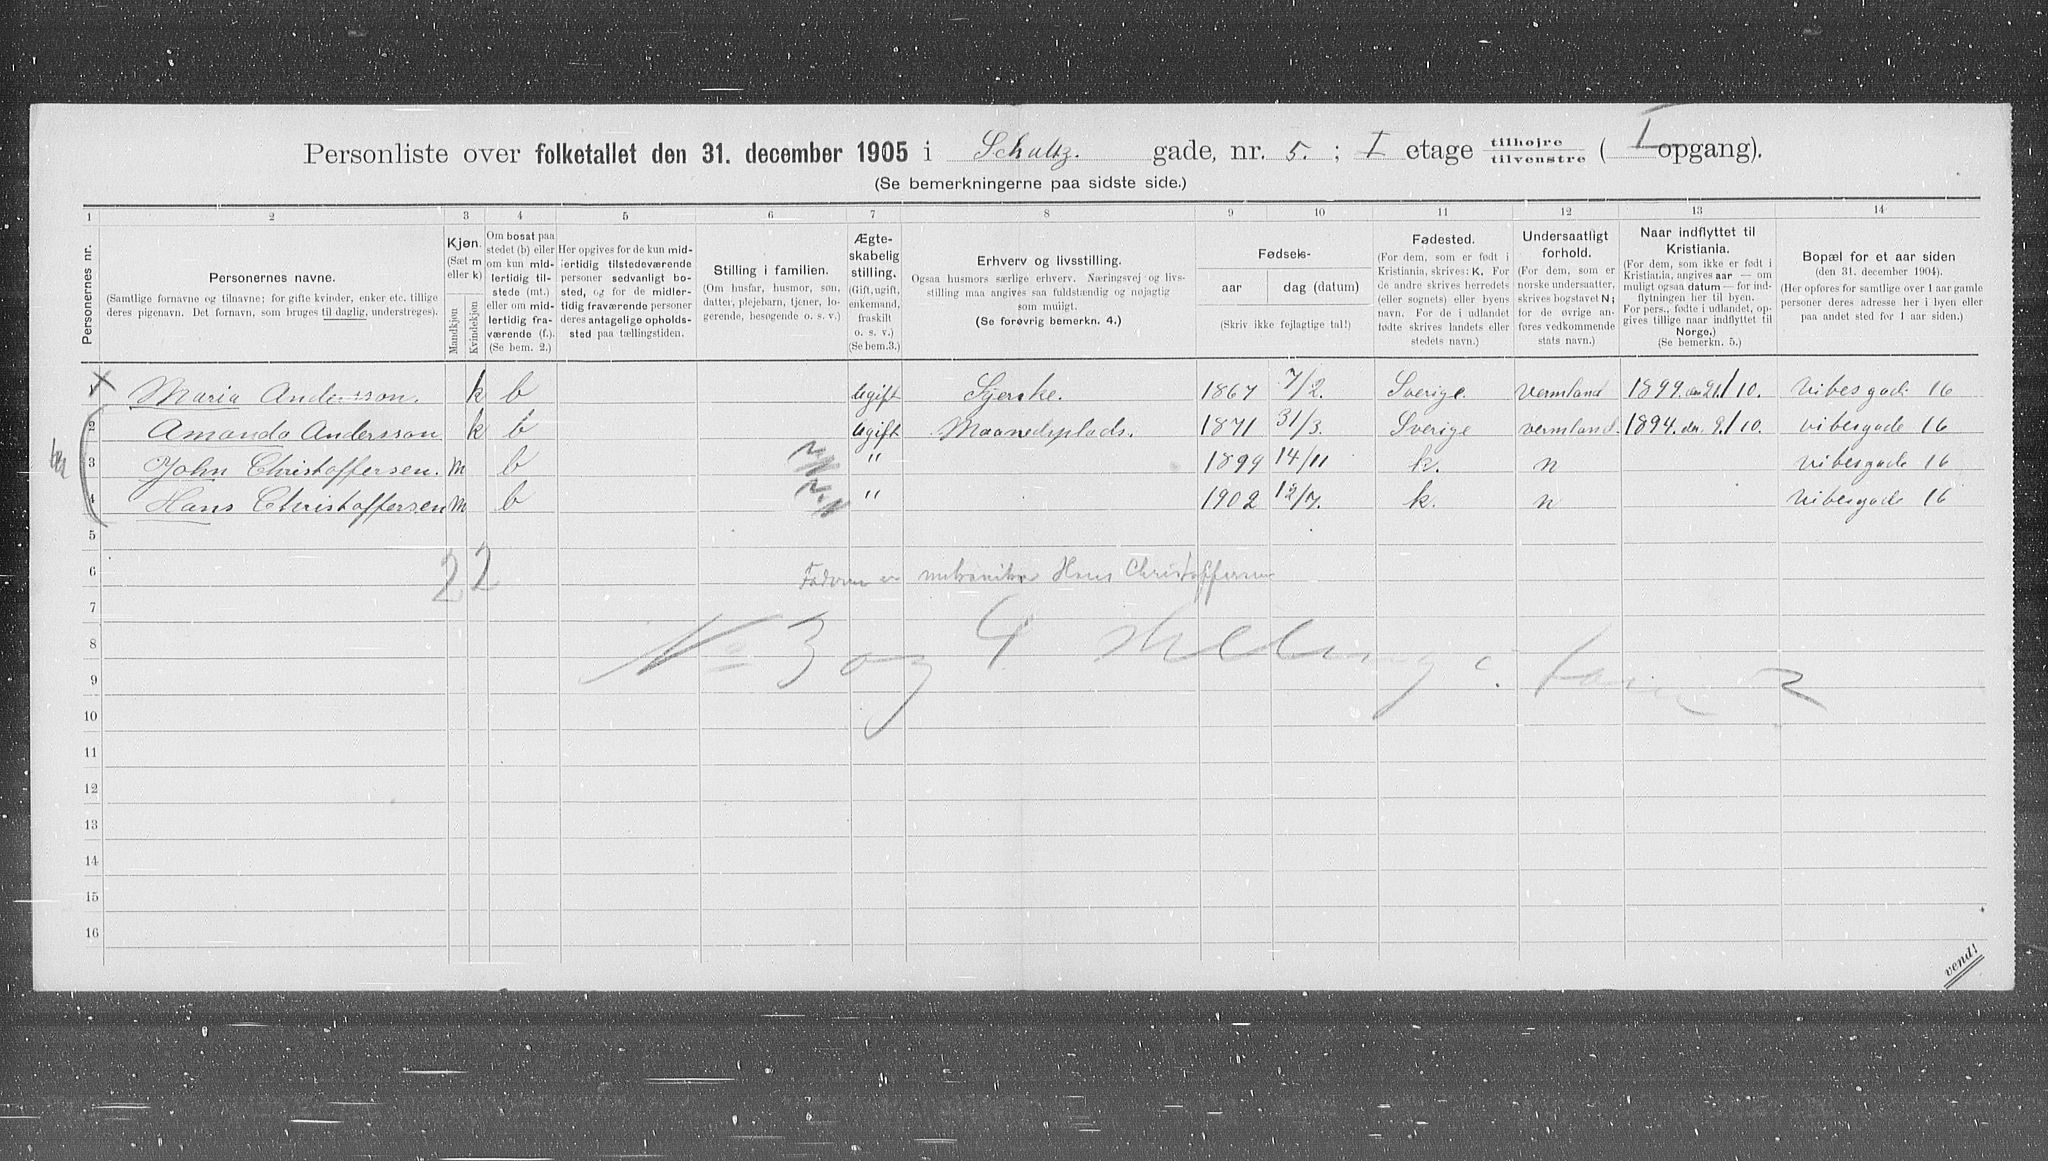 Personliste over folketallet den 31. december 1905 i Schultz. gade, nr. 5. ; I etage tilhøjre tilvenstre ( I opgang).
(Se bemerkningerne paa sidste side.)
1 2 3 4 5 6 7 8 9 10 11 12 13 14
Personernes nr.
Personernes navne.
(Samtlige fornavne og tilnavne; for gifte kvinder, enker etc. tillige deres pigenavn. Det fornavn, som bruges til daglig, understreges).
Kjøn.
(Sæt m eller k)
Mandkjøn
Kvindekjøn
Om bosat paa stedet (b) eller om kun midlertidig tilstede (mt.) eller om midlertidig fraværende (f.). (Se bem. 2.)
Her opgives for de kun midlertidig tilstedeværende personer sedvanligt bosted, og for de midlertidig fraværende personer deres antagelige opholdssted paa tællingstiden.
Stilling i familien.
(Om husfar, husmor, søn, datter, plejebarn, tjener, logerende, besøgende o. s. v.)
Ægteskabelig stilling.
(Gift, ugift, enkemand, fraskilt o. s. v.)
(Se bem.3.)
Erhverv og livsstilling.
Ogsaa husmors særlige erhverv. Næringsvej og livsstilling maa angives saa fuldstændig og nøjagtig som muligt.
(Se forøvrig bemerkn. 4.)
Fødsels-
aar dag (datum)
(Skriv ikke fejlagtige tal!)
Fødested.
(For dem, som er født i Kristiania, skrives: K. For de andre skrives herredets (eller sognets) eller byens navn. For de i udlandet fødte skrives landets eller stedets navn.)
Undersaatligt forhold.
(For dem, som er norske undersaatter, skrives bogstavet N; for de øvrige anføres vedkommende stats navn.)
Naar indflyttet til Kristiania.
(For dem, som ikke er født i Kristiania, angives aar — om muligt ogsaa datum — for indflytningen her til byen. For pers., fødte i udlandet, opgives tillige naar indflyttet til Norge.)
(Se bemerkn. 5.)
Bopæl for et aar siden
(den 31. december 1904).
(Her opføres for samtlige over 1 aar gamle personer deres adresse her i byen eller paa andet sted for 1 aar siden.)
1 Maria Andersson. k b Ugift Syerske. 1867 7/2. Sverige Vermland 1899. 21/10. Vibesgade 16
2 Amanda Andersson k b Ugift Maanedsplads. 1871 31/3. Sverige vermland. 1894. 2/10. vibesgade 16
3 John Christoffersen. m b " 1899 14/11 k. n Vibesgade 16
4 Hans Christoffersen m b " 1902 12/7. k. n Vibesgade 16
5
22
6 Faderen er mekaniker Hans Christoffersen
7
No 3 og 4
8
9
10
11
12
13
14
15
16
vend!